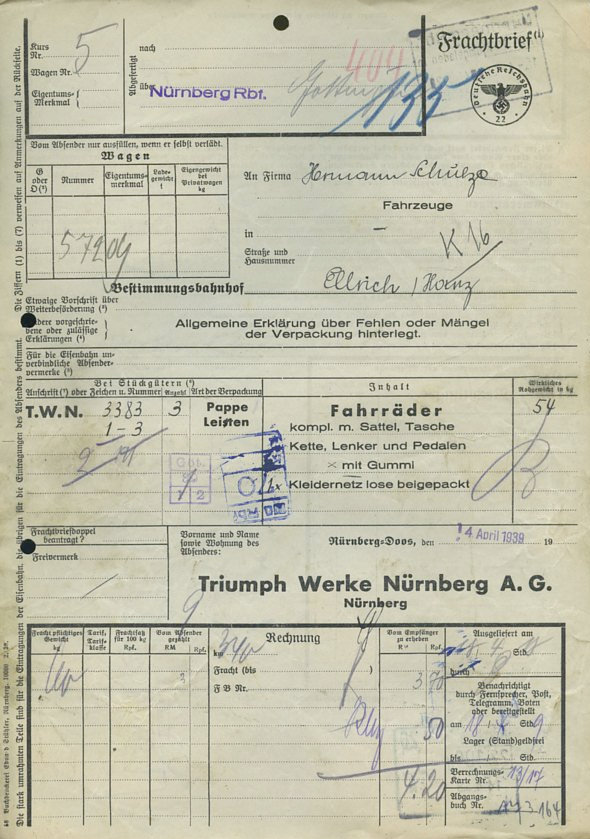 Kurs Nr.
5
Wagen Nr.
Eigentums-
Merkmal
Abgefertigt
nach
über
Nürnberg Rbf.
400
135
Frachtbrief (1)
Deutsche Reichsbahn
22
Vom Absender nur auszufüllen, wenn er selbst verlädt.
Wagen
G oder O (2)
Nummer
Eigentums-
merkmal
Lade-
gewicht t
Eigengewicht bei Privatwagen kg
57204
An Firma Hermann Schulze
Fahrzeuge
in
K 16
Straße und
Hausnummer
Bestimmungsbahnhof
Ellrich / Harz
Etwaige Vorschrift über
Weiterbeförderung (3)
Andere vorgeschrie-
bene oder zulässige
Erklärungen (4)
Allgemeine Erklärung über Fehlen oder Mängel
der Verpackung hinterlegt.
Für die Eisenbahn un-
verbindliche Absender-
vermerke (5)
Bei Stückgütern
Anschrift oder Zeichen u. Nummer
Anzahl
Art der Verpackung
Inhalt
Wirkliches
Rohgewicht in kg
T.W.N. 3383 3 Pappe
1-3 Leisten
Fahrräder
54
kompl. m. Sattel, Tasche
Kette, Lenker und Pedalen
× mit Gummi
Kleidernetz lose beigepackt
Frachtbriefdoppel
beantragt?
Freivermerk
Vorname und Name
sowie Wohnung des
Absenders:
Nürnberg-Doos, den 14. April 1939 19
Triumph Werke Nürnberg A. G.
Nürnberg
Frachtpflichtiges
Gewicht
kg
Tarif,
Tarif-
klasse
Frachtsatz
für 100 kg
Rpf.
Vom Absender
gezahlt
RM Rpf.
Rechnung
km 340
Fracht (bis )
F B Nr.
Vom Empfänger
zu erheben
RM Rpf.
60
3 70
50
4.20
Ausgeliefert am
Std.
durch
Benachrichtigt
durch Fernsprecher, Post,
Telegramm, Boten
oder bereitgestellt
am 18. 4. Std. 9
Lager (Stand)geldfrei
bis Std.
Verrechnungs-
Karte Nr. 13/17
Abgangs-
buch Nr.
164
Die Ziffern (1) bis (7) verweisen auf Anmerkungen auf der Rückseite.
Die stark umrahmten Teile sind für die Eintragungen der Eisenbahn, die übrigen für die Eintragungen des Absenders bestimmt.